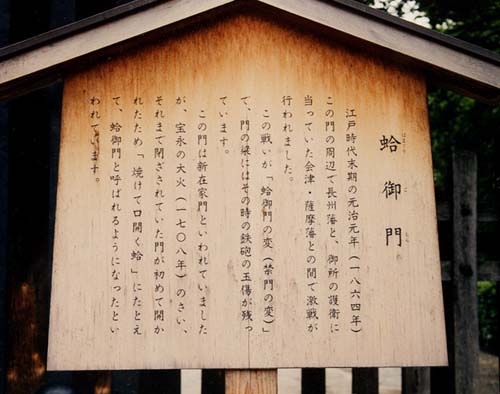 蛤御門
江戸時代末期の元治元年（一八六四年）
この門の周辺で長州藩と、御所の護衛に
当っていた会津・薩摩藩との間で激戦が
行われました。
この戦いが「蛤御門の変（禁門の変）」
で、門の梁にはその時の鉄砲の玉傷が残っ
ています。
この門は新在家門といわれていました
が、宝永の大火（一七〇八年）のさい、
それまで閉ざされていた門が初めて開か
れたため「焼けて口開く蛤」にたとえ
て、蛤御門と呼ばれるようになったとい
われています。